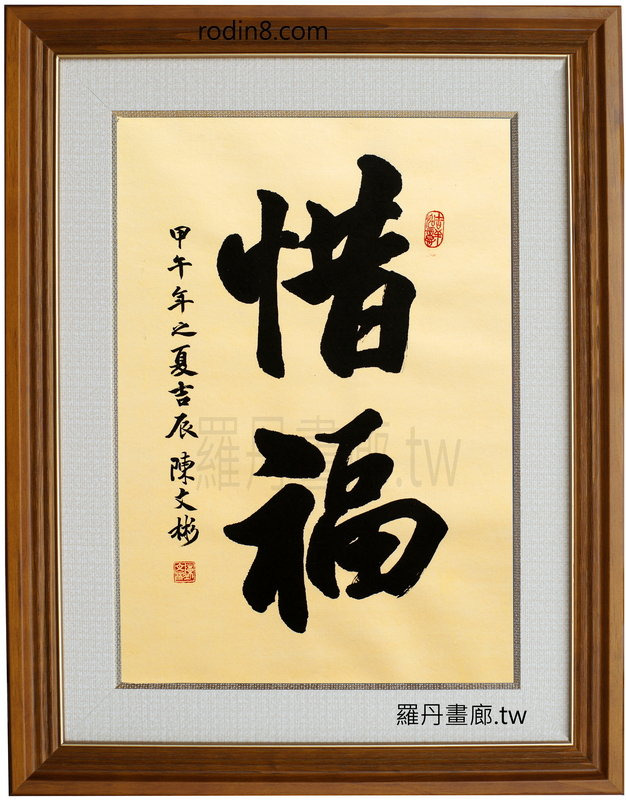 rodin8.com
惜福
甲午年之夏吉辰 陳文彬
羅丹畫廊.tw
羅丹畫廊.tw